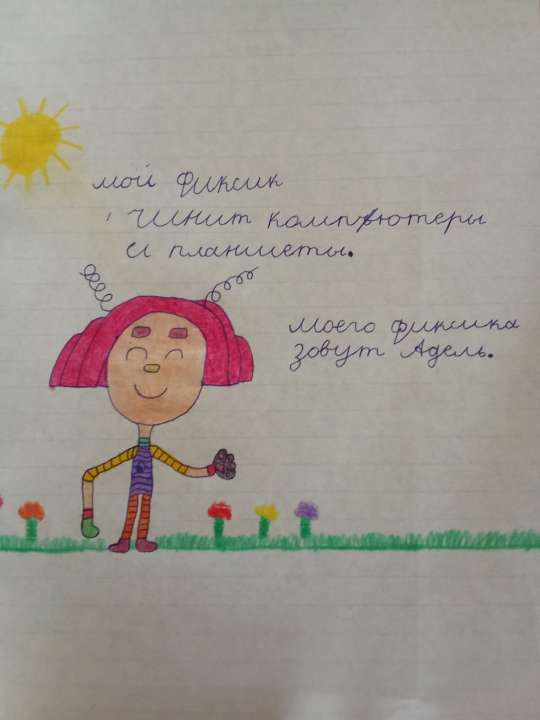 мой фиксик
чинит компьютеры
и планшеты.
Моего фиксика
зовут Адель.